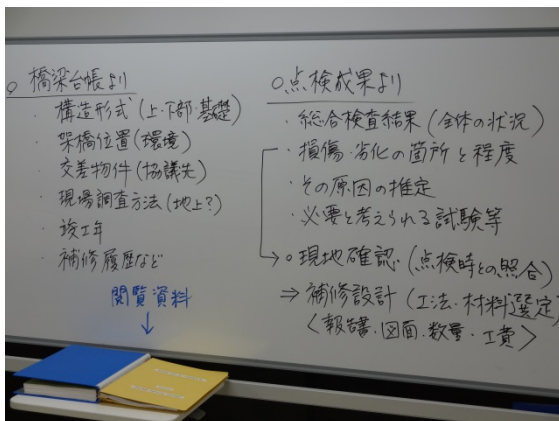 ○ 橋梁台帳より
・構造形式(上・下部・基礎)
・架橋位置(環境)
・交差物件(協議先)
・現場調査方法(地上?)
・竣工年
・補修履歴など
閲覧資料
↓
○点検成果より
・総合検査結果(全体の状況)
・損傷・劣化の箇所と程度
・その原因の推定
・必要と考えられる試験等
→○現地確認(点検時との照合)
⇒補修設計(工法・材料選定)
〈報告書・図面・数量・工費〉